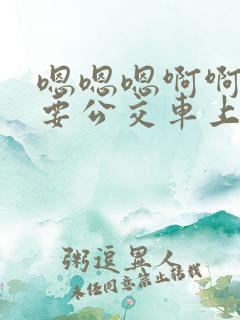 嗯嗯嗯啊啊
要公交车上
粥逗異人
未任同意禁止转载